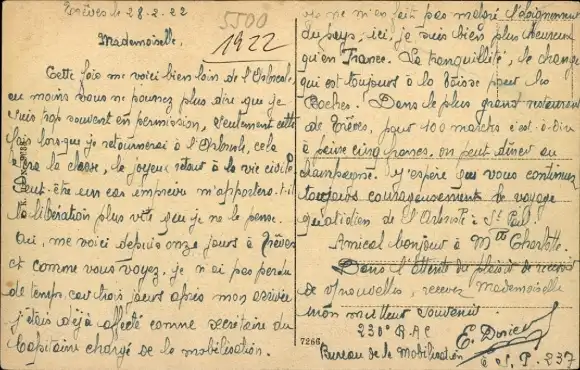 Trèves le 28-2-22
5500
1922
Mademoiselle.
Cette fois me voici bien loin de l'Arbresle
au moins vous ne pourrez plus dire que je
suis trop souvent en permission, seulement cette
fois lorsque je retournerai à l'Arbresle, cela
sera la classe, le joyeux retour à la vie civile
Peut-être un cas imprévu m'apportera-t-il
la libération plus vite que je ne le pense.
Oui, me voici depuis onze jours à Trèves
et comme vous voyez, je n'ai pas perdu
de temps, car trois jours après mon arrivée
j'étais déjà affecté comme secrétaire du
Capitaine chargé de la mobilisation.
je ne m'en fait pas malgré l'éloignement
du pays, ici, je suis bien plus heureux
qu'en France. La tranquillité, le change
qui est toujours à la baisse pour les
Boches. Dans le plus grand restaurant
de Trèves, pour 100 marks c'est-à-dire
à peine cinq francs, on peut dîner au
champagne. J'espère que vous continuez
toujours courageusement le voyage
quotidien de l'Arbresle à St
Amical bonjour à Mlle Charlotte.
Dans l'attente du plaisir de recevoir
de vos nouvelles, recevez Mademoiselle
mon meilleur souvenir
E. Dorier
230e R A C
Bureau de la Mobilisation
S. P. 237
7266